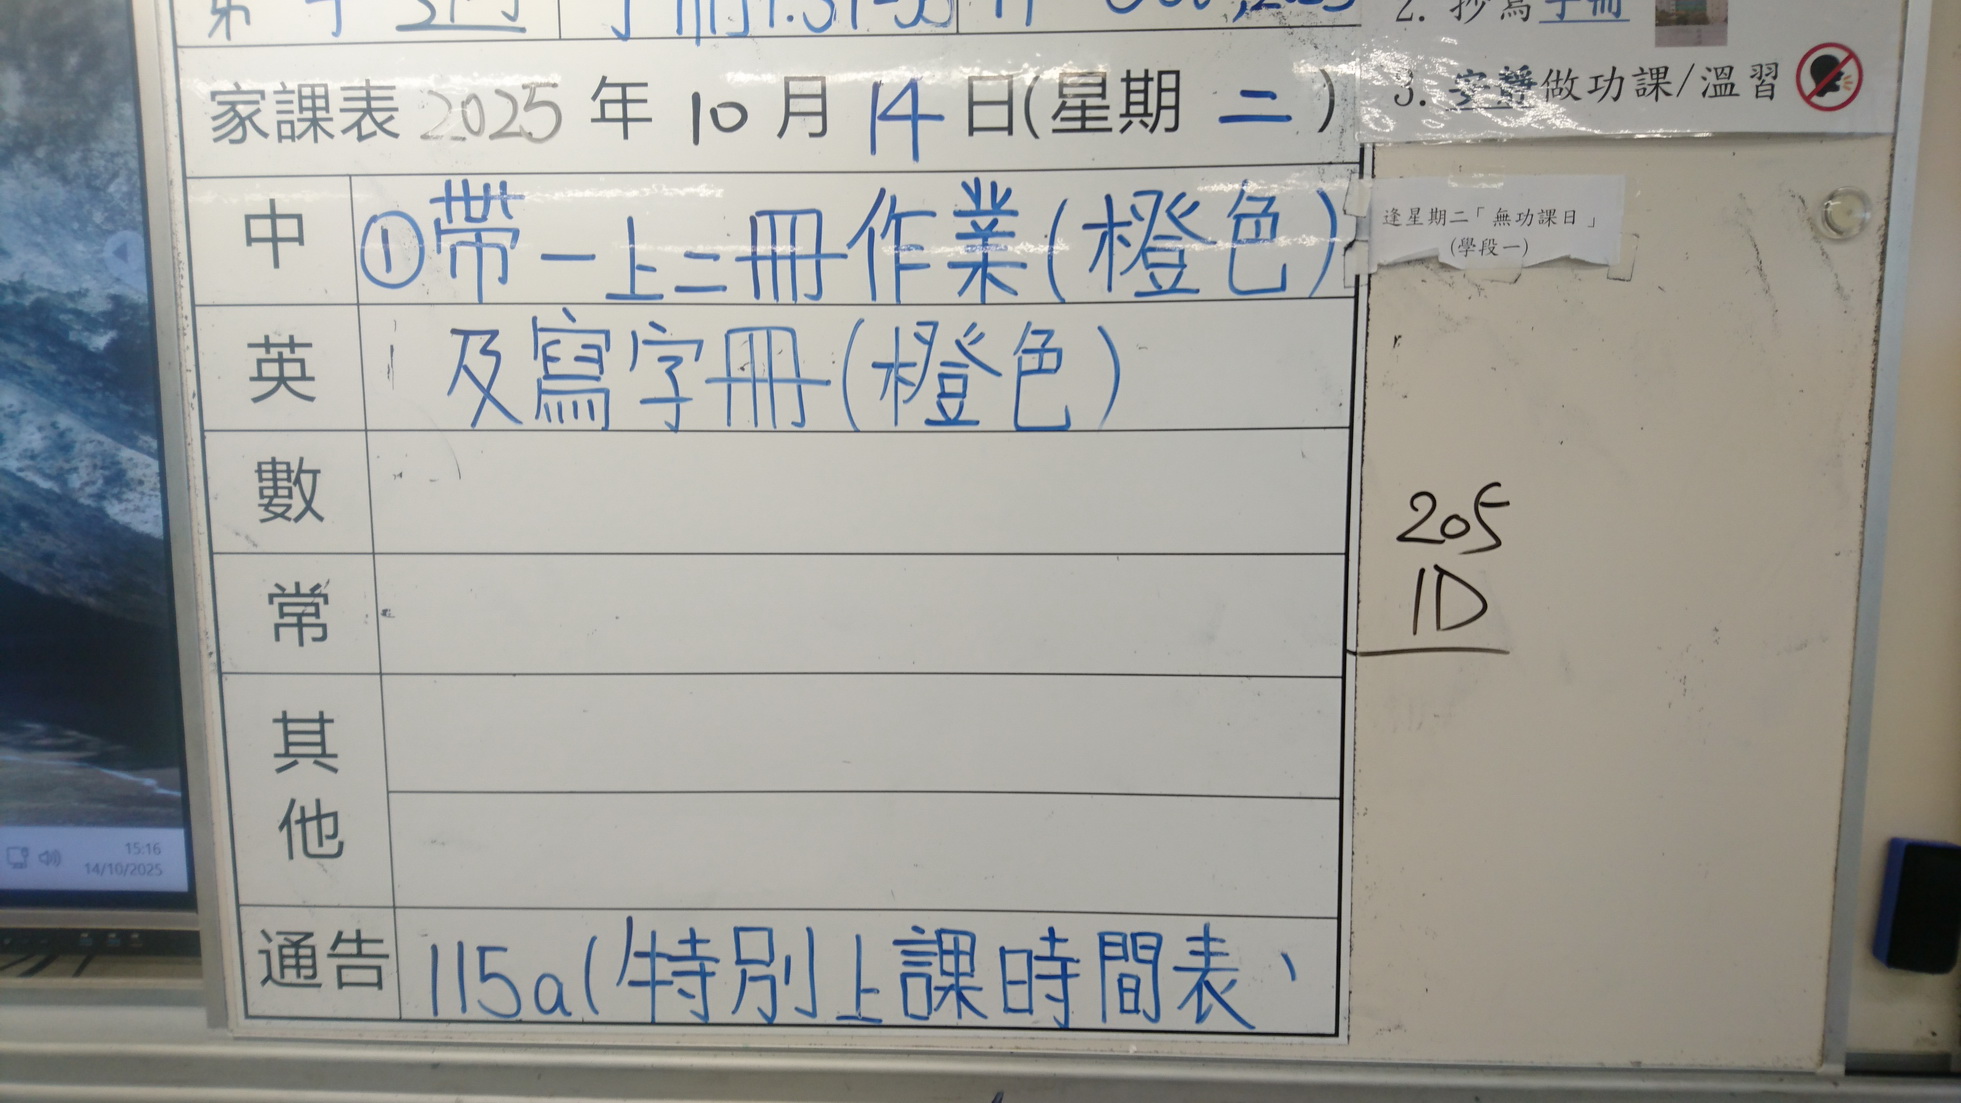 2. 抄寫手冊
家課表 2025 年 10 月 14 日(星期 二 )
3. 安靜做功課/溫習
中 ①帶一上二冊作業(橙色)
逢星期二「無功課日」
(學段一)
英 及寫字冊(橙色)
數
205
1D
常
其他
15:16
14/10/2025
通告 115a(特別上課時間表、